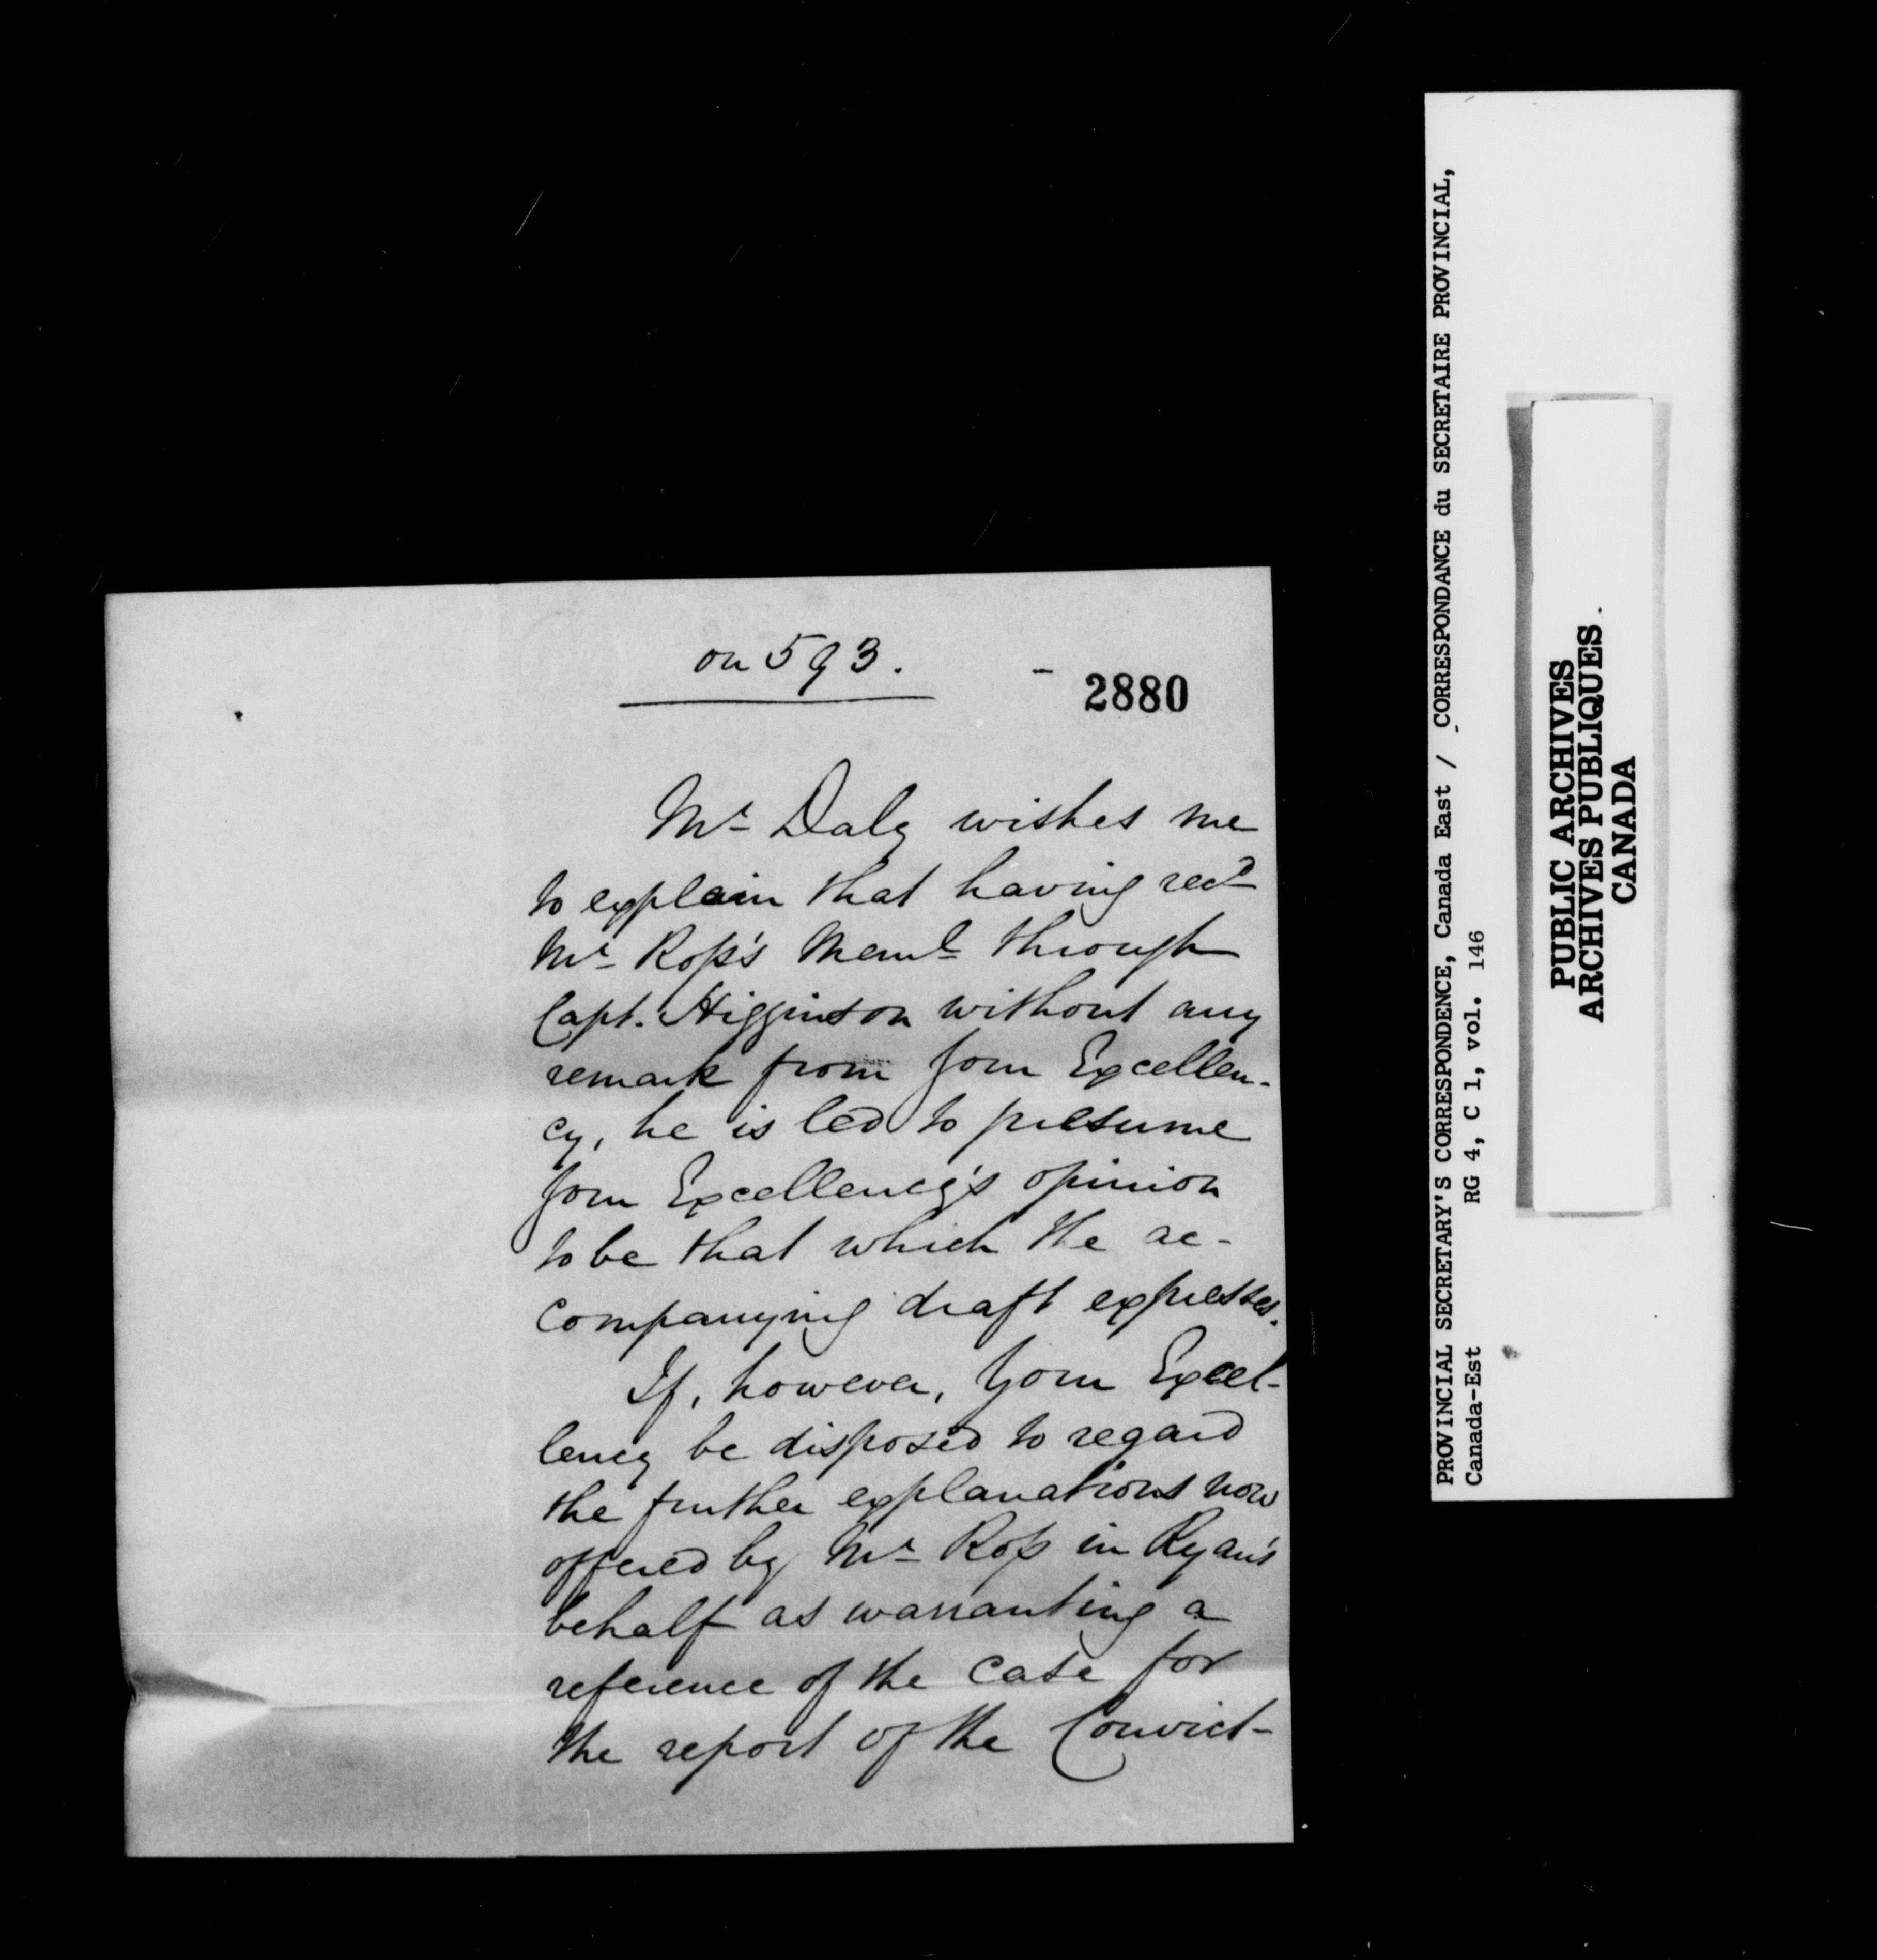 on 593.
2880
Mr Daly wishes me
to explain that having recd
Mr Ross's Meml through
Capt. Higginson without any
remark from Your Excellen-
cy, he is led to presume
Your Excellency's opinion
to be that which the ac-
companying draft expresses.
If, however, Your Excel-
lency be disposed to regard
the further explanations now
offered by Mr Ross in Ryan's
behalf as warranting a
reference of the case for
the report of the Convict-
PROVINCIAL SECRETARY'S CORRESPONDENCE, Canada East / CORRESPONDANCE du SECRETAIRE PROVINCIAL,
Canada-Est RG 4, C 1, vol. 146
PUBLIC ARCHIVES
ARCHIVES PUBLIQUES
CANADA